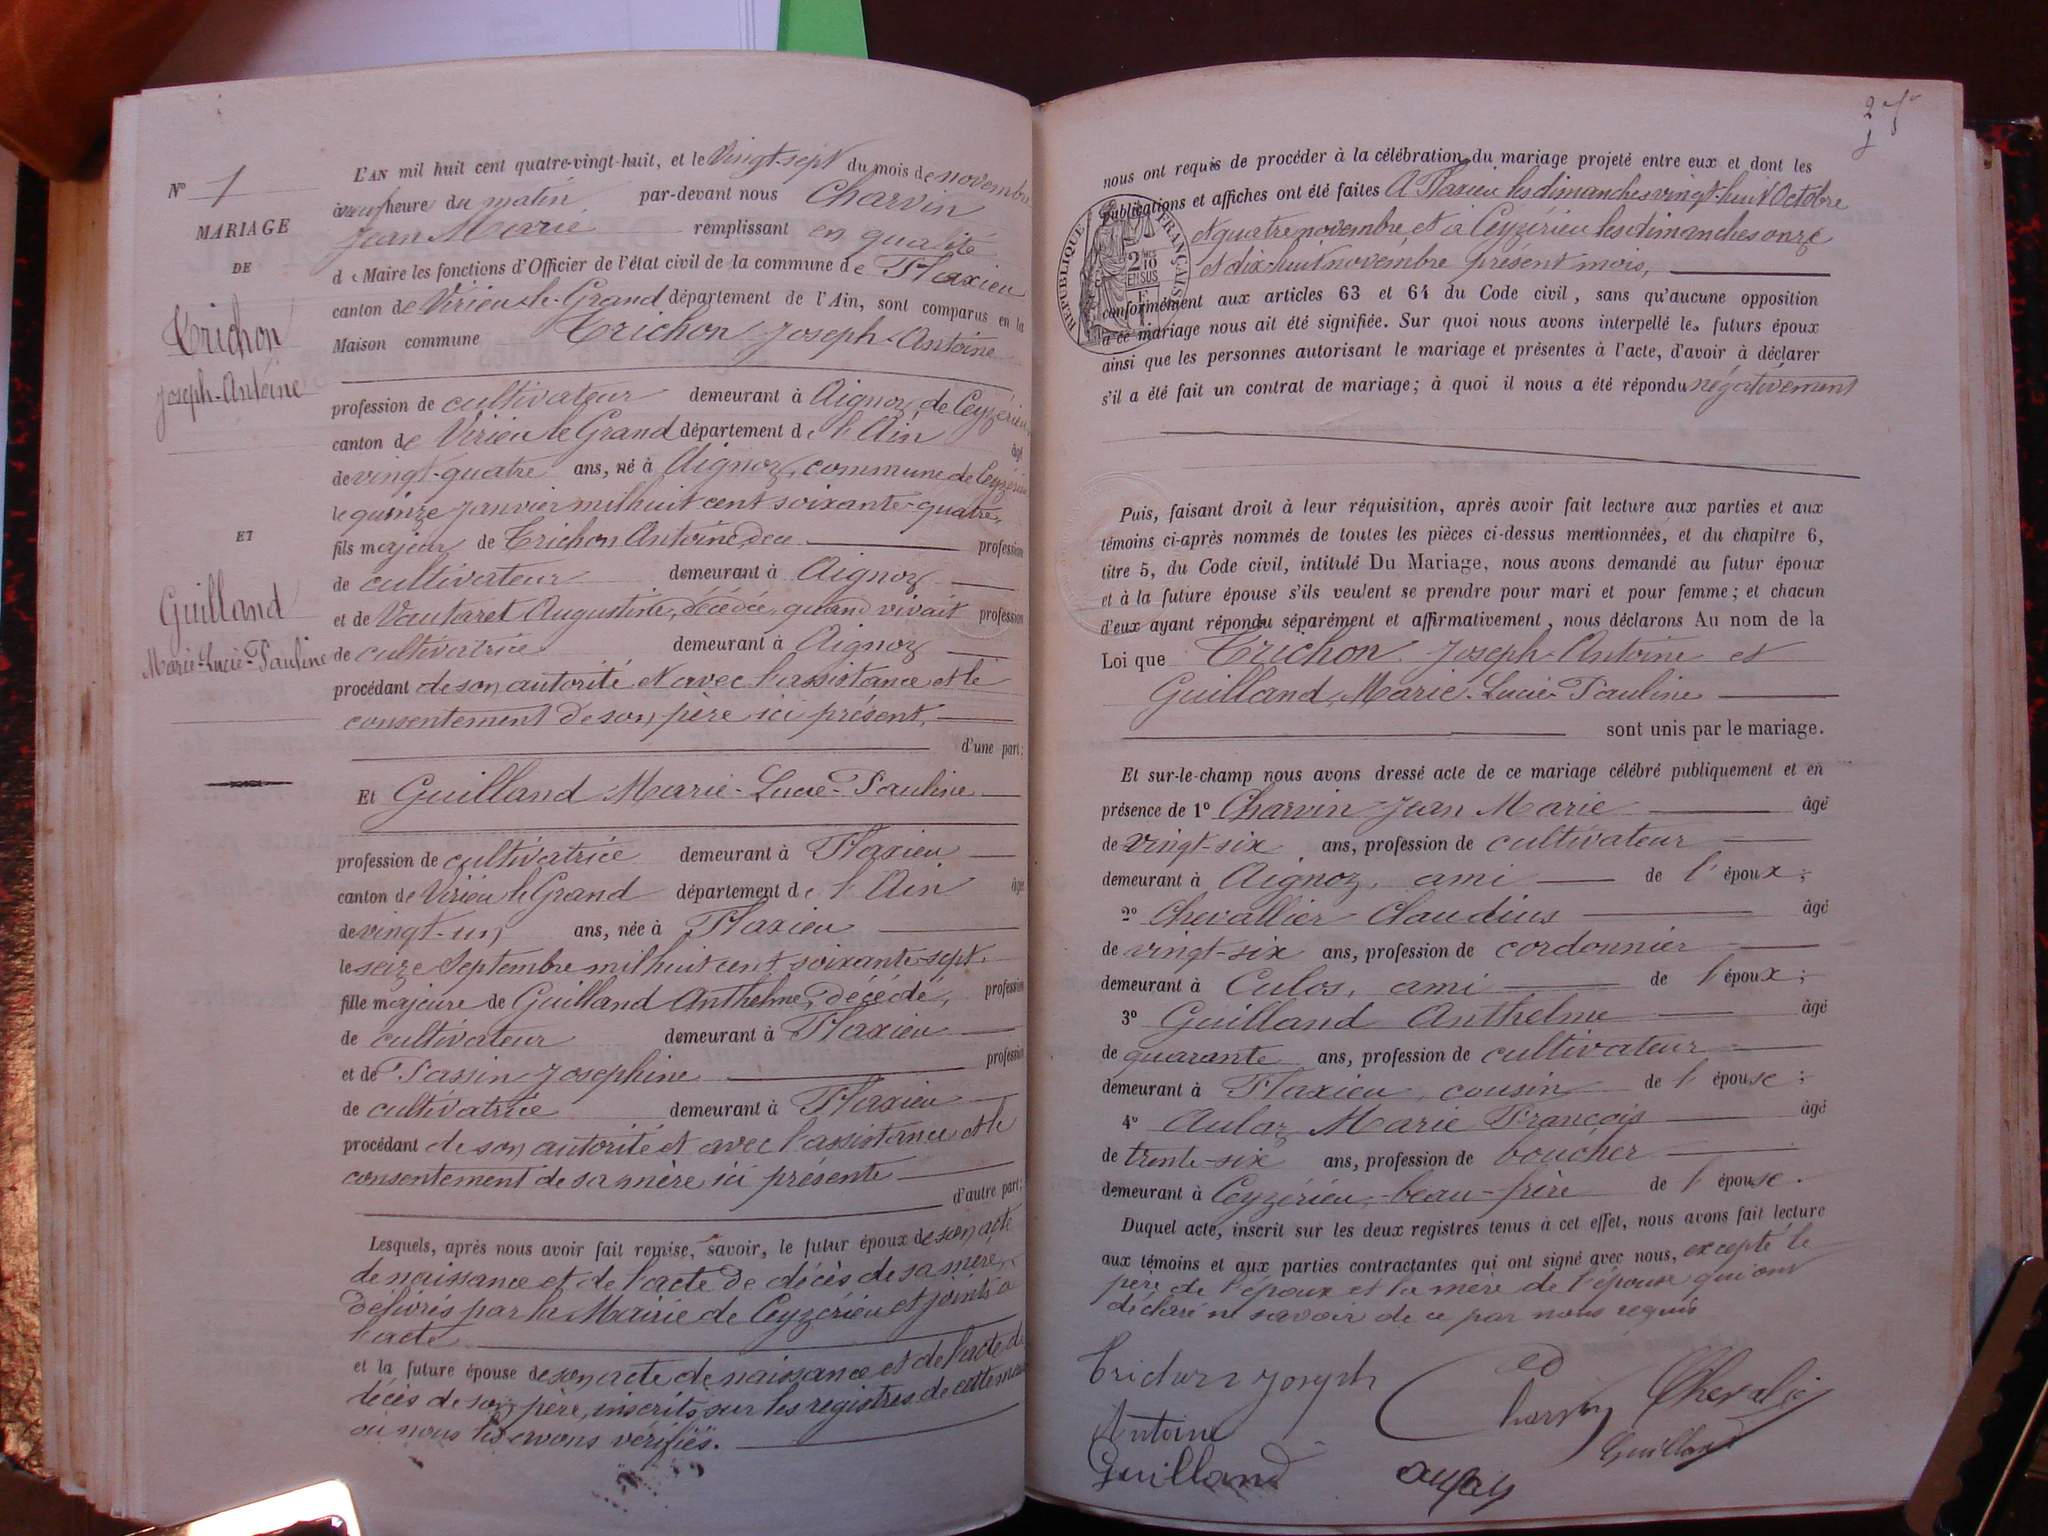 N° 1
MARIAGE
DE
Trichon
Joseph-Antoine
ET
Guilland
Marie-Lucie-Pauline
L'AN mil huit cent quatre-vingt-huit, et le Vingt-sept du mois de novembre
à neuf heure du matin par-devant nous Charvin
Jean Marie remplissant en qualité
de Maire les fonctions d'Officier de l'état civil de la commune de Flaxieu
canton de Virieu-le-Grand département de l'Ain, sont comparus en la
Maison commune Trichon Joseph-Antoine
profession de cultivateur demeurant à Aignoz, de Ceyzérieu
canton de Virieu le Grand département de l'Ain âgé
de vingt-quatre ans, né à Aignoz, commune de Ceyzérieu
le quinze janvier mil huit cent soixante-quatre,
fils majeur de Trichon Antoine, profession
de cultivateur demeurant à Aignoz
et de Vautaret Augustine, décédée, quand vivait profession
de cultivatrice demeurant à Aignoz
procédant de son autorité et avec l'assistance et le
consentement de son père ici présent,
d'une part;
Et Guilland Marie-Lucie-Pauline
profession de cultivatrice demeurant à Flaxieu
canton de Virieu le Grand département de l'Ain âgée
de vingt-un ans, née à Flaxieu
le seize Septembre mil huit cent soixante-sept.
fille majeure de Guilland Anthelme, décédé, profession
de cultivateur demeurant à Flaxieu
et de Passin Josephine profession
de cultivatrice demeurant à Flaxieu
procédant de son autorité et avec l'assistance et le
consentement de sa mère ici présente
d'autre part;
Lesquels, après nous avoir fait remise, savoir, le futur époux de son acte
de naissance et de l'acte de décès de sa mère,
délivrés par la Mairie de Ceyzérieu et joints à
l'acte
et la future épouse de son acte de naissance et de l'acte de
décès de son père, inscrits sur les registres de cette mairie
où nous les avons vérifiés.
nous ont requis de procéder à la célébration du mariage projeté entre eux et dont les
publications et affiches ont été faites A Flaxieu les dimanches vingt-huit Octobre
et quatre novembre, et à Ceyzérieu les dimanches onze
et dix-huit novembre présent mois,
RÉPUBLIQUE FRANÇAISE
2/10 EN SUS
conformément aux articles 63 et 64 du Code civil, sans qu'aucune opposition
à ce mariage nous ait été signifiée. Sur quoi nous avons interpellé les futurs époux
ainsi que les personnes autorisant le mariage et présentes à l'acte, d'avoir à déclarer
s'il a été fait un contrat de mariage; à quoi il nous a été répondu négativement
Puis, faisant droit à leur réquisition, après avoir fait lecture aux parties et aux
témoins ci-après nommés de toutes les pièces ci-dessus mentionnées, et du chapitre 6,
titre 5, du Code civil, intitulé Du Mariage, nous avons demandé au futur époux
et à la future épouse s'ils veulent se prendre pour mari et pour femme; et chacun
d'eux ayant répondu séparément et affirmativement, nous déclarons Au nom de la
Loi que Trichon Joseph-Antoine et
Guilland, Marie-Lucie-Pauline
sont unis par le mariage.
Et sur-le-champ nous avons dressé acte de ce mariage célébré publiquement et en
présence de 1° Charvin Jean Marie âgé
de vingt-six ans, profession de cultivateur
demeurant à Aignoz, ami de l'époux;
2° Chevallier Claudius âgé
de vingt-six ans, profession de cordonnier
demeurant à Culoz, ami de l'époux;
3° Guilland Anthelme âgé
de quarante ans, profession de cultivateur
demeurant à Flaxieu, cousin de l'épouse;
4° Aulaz Marie François âgé
de trente-six ans, profession de boucher
demeurant à Ceyzérieu, beau-frère de l'épouse.
Duquel acte, inscrit sur les deux registres tenus à cet effet, nous avons fait lecture
aux témoins et aux parties contractantes qui ont signé avec nous, excepté le
père de l'époux et la mère de l'épouse qui ont
déclaré ne savoir de ce par nous requis
Trichon Joseph
Antoine
Charvin
Guilland
Guilland